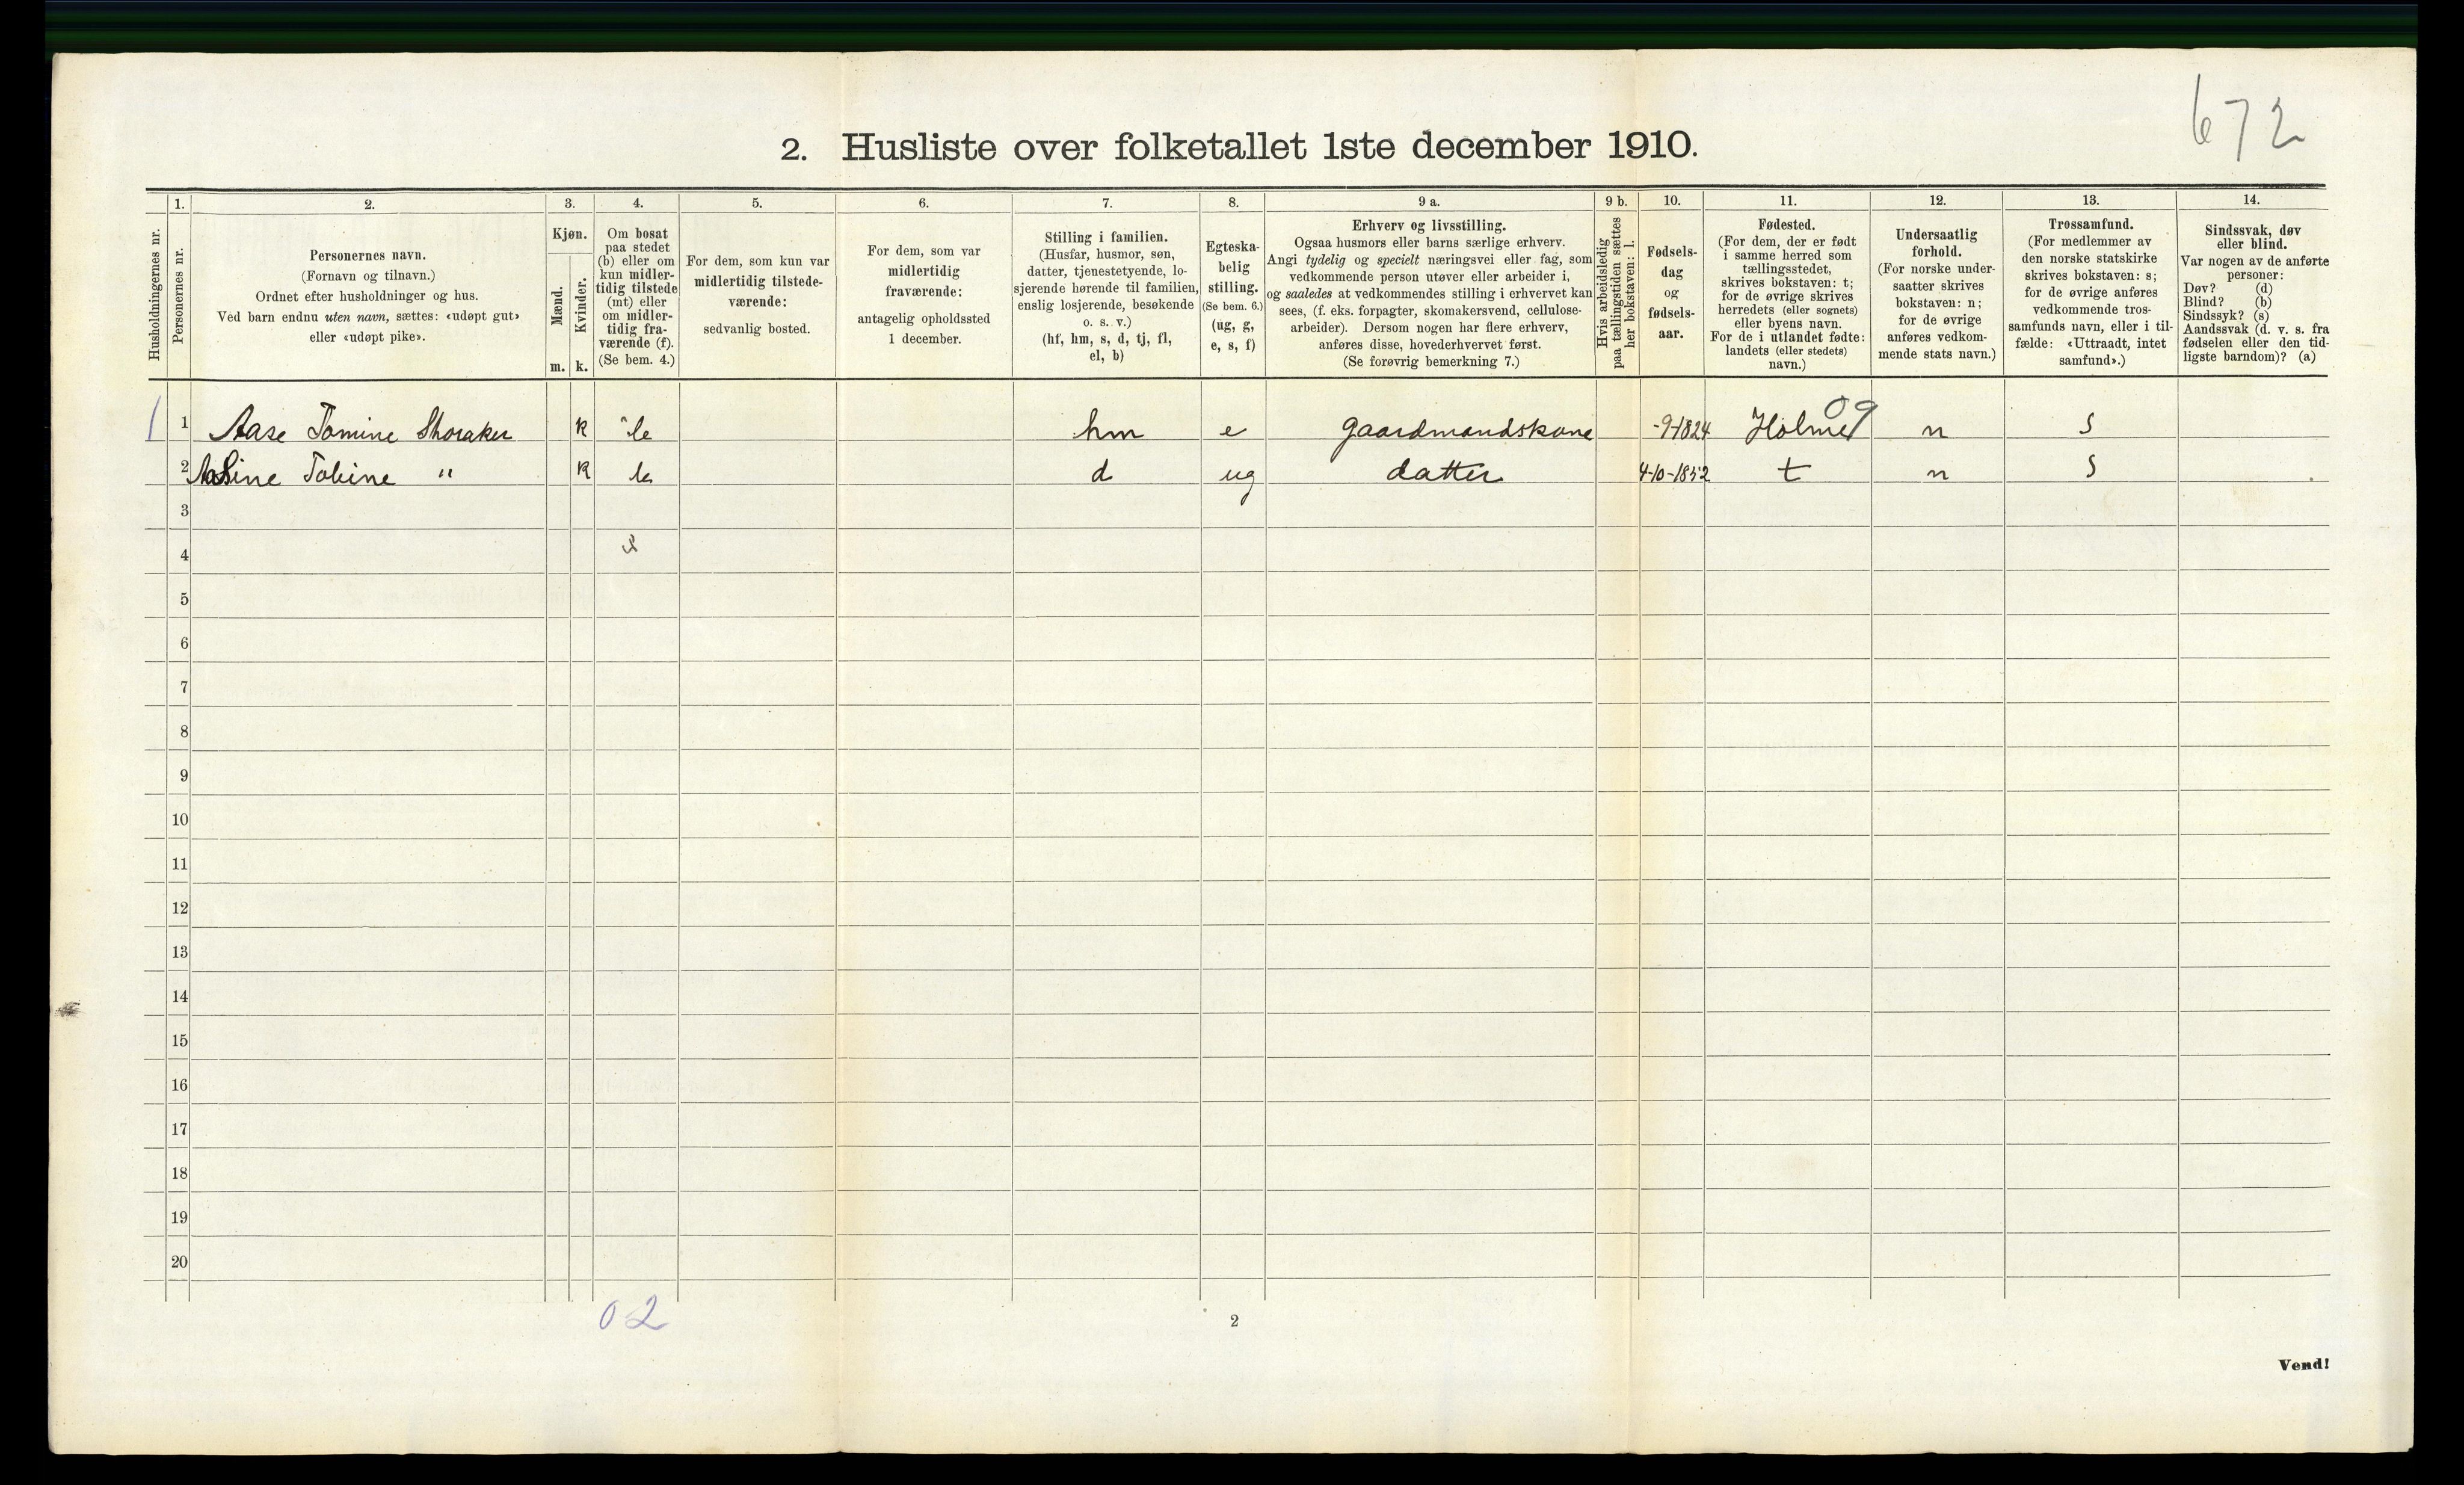 672
2. Husliste over folketallet 1ste december 1910.
Husholdningernes nr.
1.
Personernes nr.
2.
Personernes navn.
(Fornavn og tilnavn.)
Ordnet efter husholdninger og hus.
Ved barn endnu uten navn, sættes: «udøpt gut»
eller «udøpt pike».
3.
Kjøn.
Mænd.
Kvinder.
m. k.
4.
Om bosat
paa stedet
(b) eller om
kun midler-
tidig tilstede
(mt) eller
om midler-
tidig fra-
værende (f).
(Se bem. 4.)
5.
For dem, som kun var
midlertidig tilstede-
værende:
sedvanlig bosted.
6.
For dem, som var
midlertidig
fraværende:
antagelig opholdssted
1 december.
7.
Stilling i familien.
(Husfar, husmor, søn,
datter, tjenestetyende, lo-
sjerende hørende til familien,
enslig losjerende, besøkende
o. s. v.)
(hf, hm, s, d, tj, fl,
el, b)
8.
Egteska-
belig
stilling.
(Se bem. 6.)
(ug, g,
e, s, f)
9 a.
Erhverv og livsstilling.
Ogsaa husmors eller barns særlige erhverv.
Angi tydelig og specielt næringsvei eller fag, som
vedkommende person utøver eller arbeider i,
og saaledes at vedkommendes stilling i erhvervet kan
sees, (f. eks. forpagter, skomakersvend, cellulose-
arbeider). Dersom nogen har flere erhverv,
anføres disse, hovederhvervet først.
(Se forøvrig bemerkning 7.)
9 b.
Hvis arbeidsledig
paa tællingstiden sættes
her bokstaven: l.
10.
Fødsels-
dag
og
fødsels-
aar.
11.
Fødested.
(For dem, der er født
i samme herred som
tællingsstedet,
skrives bokstaven: t;
for de øvrige skrives
herredets (eller sognets)
eller byens navn.
For de i utlandet fødte:
landets (eller stedets)
navn.)
12.
Undersaatlig
forhold.
(For norske under-
saatter skrives
bokstaven: n;
for de øvrige
anføres vedkom-
mende stats navn.)
13.
Trossamfund.
(For medlemmer av
den norske statskirke
skrives bokstaven: s;
for de øvrige anføres
vedkommende tros-
samfunds navn, eller i til-
fælde: «Uttraadt, intet
samfund».)
14.
Sindssvak, døv
eller blind.
Var nogen av de anførte
personer:
Døv? (d)
Blind? (b)
Sindssyk? (s)
Aandssvak (d. v. s. fra
fødselen eller den tid-
ligste barndom)? (a)
09
1 1 Aase Tomine Skoraker k b hm e gaardmandskone -9-1824 Holme n s
2 Aasine Tobine " k b d ug datter 4-10-1852 t n s
3
4
5
6
7
8
9
10
11
12
13
14
15
16
17
18
19
20
02
2
Vend!